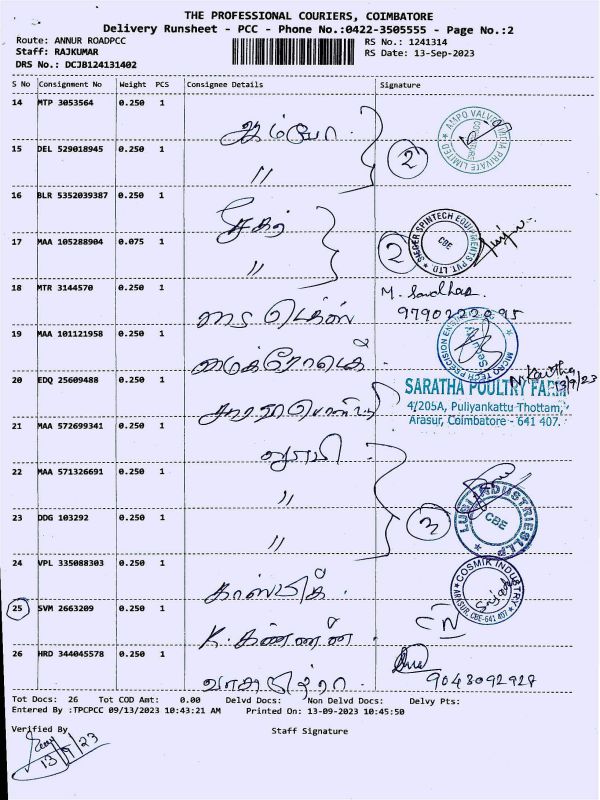 THE PROFESSIONAL COURIERS, COIMBATORE
Delivery Runsheet - PCC - Phone No.:0422-3505555 - Page No.:2
Route: ANNUR ROADPCC
RS No.: 1241314
Staff: RAJKUMAR
RS Date: 13-Sep-2023
DRS No.: DCJB124131402
S No Consignment No Weight PCS Consignee Details Signature
14 MTP 3053564 0.250 1
ஆம்போ.
AMPO VALVES INDIA PRIVATE LIMITED
15 DEL 529018945 0.250 1
〃
2
16 BLR 5352039387 0.250 1
சேகர்
SHEGER SPINTECH EQUIPMENTS PVT. LTD
CBE
17 MAA 105288904 0.075 1
〃
2
18 MTR 3144570 0.250 1
M. Sandhas.
9790222095
19 MAA 101121958 0.250 1
மைக்ரோடெக்
MICRO TECH PRECISION ENGINEERING
20 EDQ 25609488 0.250 1
13/9/23
SARATHA POULTRY FARM
4/205A, Puliyankattu Thottam,
Arasur, Coimbatore - 641 407.
21 MAA 572699341 0.250 1
லூபி
22 MAA 571326691 0.250 1
〃
LUBI INDUSTRIES LLP
CBE
23 DDG 103292 0.250 1
〃
3
24 VPL 335088303 0.250 1
காஸ்மிக்
COSMIK INDUSTRY
ARASUR, CBE-641 407
25 SVM 2663209 0.250 1
K. கண்ணன்
26 HRD 344045578 0.250 1
9043092928
Tot Docs: 26 Tot COD Amt: 0.00 Delvd Docs: Non Delvd Docs: Delvy Pts:
Entered By :TPCPCC 09/13/2023 10:43:21 AM Printed On: 13-09-2023 10:45:50
Verified By
Staff Signature
13/9/23